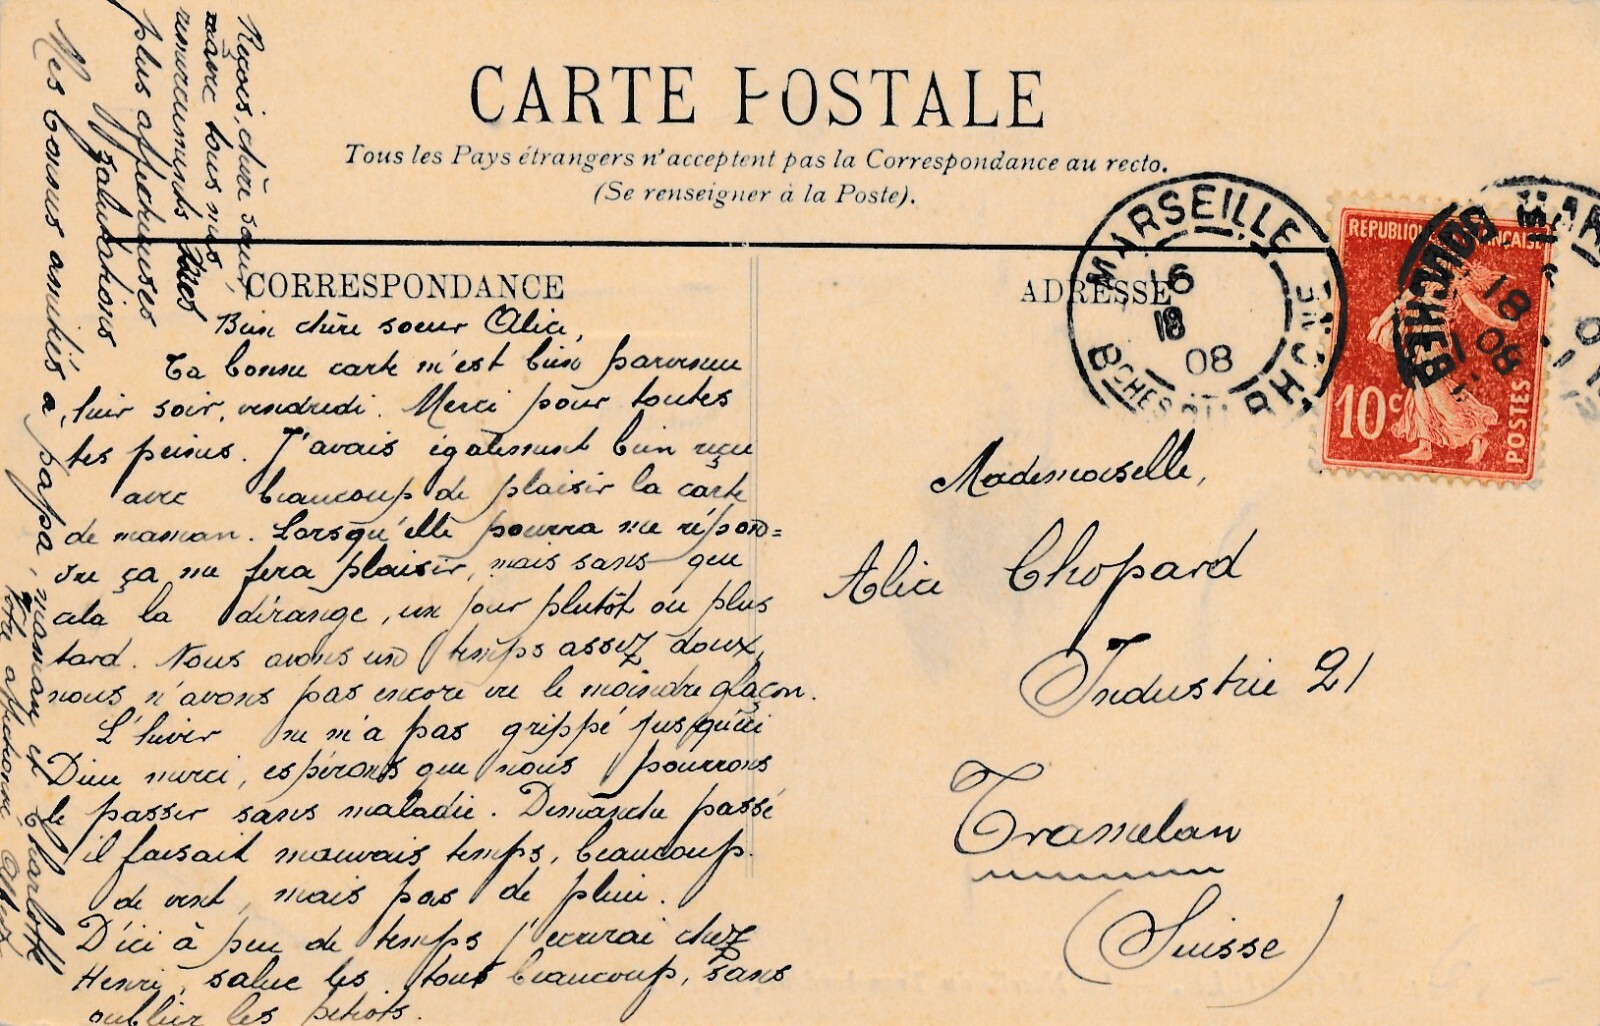 CARTE POSTALE
Tous les Pays étrangers n'acceptent pas la Correspondance au recto.
(Se renseigner à la Poste).
CORRESPONDANCE
Bien chère soeur Alice,
Ta bonne carte m'est bien parvenue
hier soir, vendredi. Merci pour toutes
tes peines. J'avais également bien reçu
avec beaucoup de plaisir la carte
de maman. Lorsqu'elle pourra me répon=
dre ça me fera plaisir, mais sans que
cela la dérange, un jour plutôt ou plus
tard. Nous avons un temps assez doux,
nous n'avons pas encore vu le moindre glaçon.
L'hiver ne m'a pas grippé jusqu'ici
Dieu merci, espérons que nous pourrons
le passer sans maladie. Dimanche passé
il faisait mauvais temps, beaucoup
de vent, mais pas de pluie.
D'ici à peu de temps j'écrirai chez
Henri, salue les tous beaucoup, sans
oublier les petiots.
Reçois, chère soeur,
avec tous mes
remerciements mes
plus affectueuses
salutations
Mes bonnes amitiés à papa, maman et Charlotte
Votre affectionné
ADRESSE
Mademoiselle,
Alice Chopard
Industrie 21
Tramelan
(Suisse)
MARSEILLE
16
18
08
BCHES DU RH
REPUBLIQUE FRANÇAISE
10c
POSTES
MAR
BOUCHES
18
08